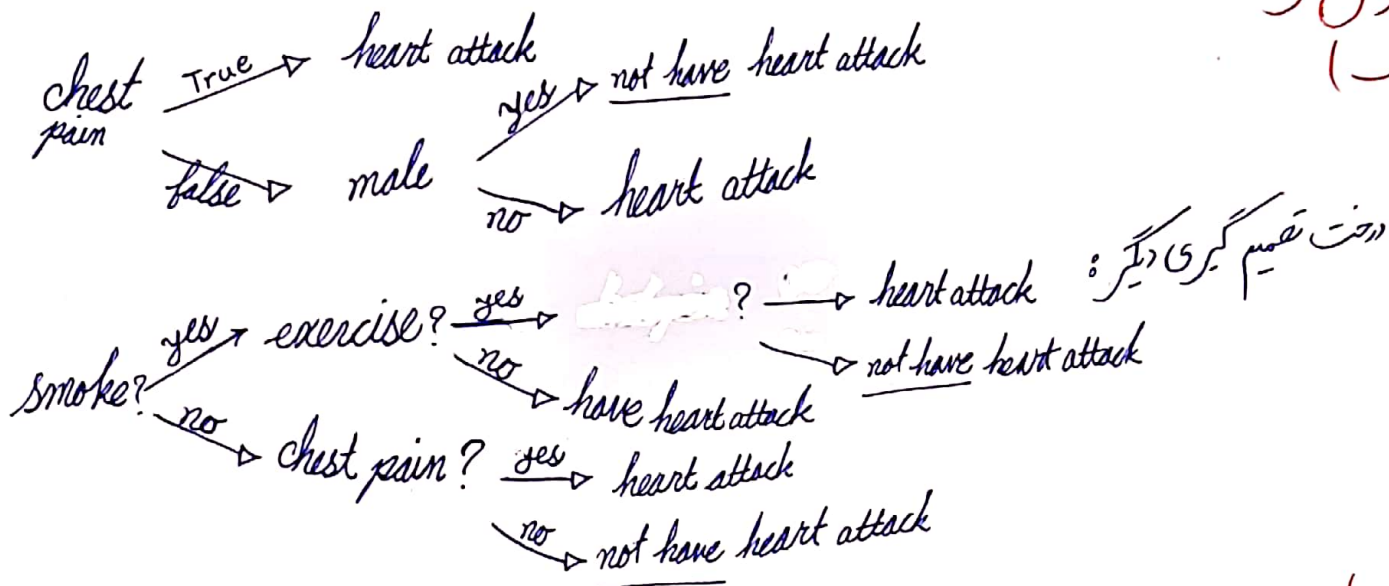 heart attack
chest pain
True
yes
not have heart attack
false
male
no
heart attack
درخت تصمیم گیری دیگر :
smoke?
yes
exercise?
yes
?
heart attack
not have heart attack
no
have heart attack
no
chest pain?
yes
heart attack
no
not have heart attack